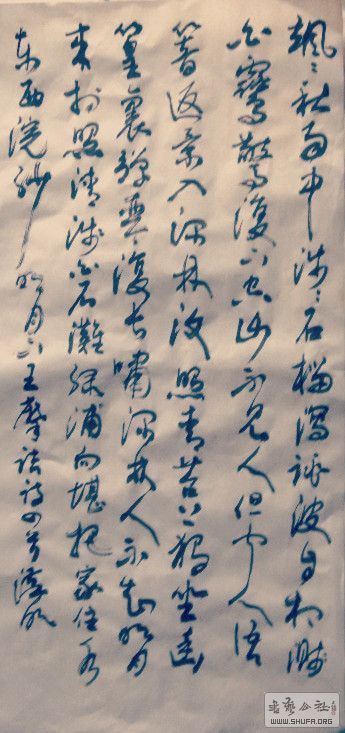 颯〻秋雨中淺〻石榴瀉跳波自相濺
白鷺驚復下空山不見人但聞人語
響返景入深林復照青苔上獨坐幽
篁裏彈琴復長嘯深林人不知明月
來相照清淺白石灘綠蒲向堪把家住水
東西浣紗明月下王摩詰詩四首
书艺公社
WWW.SHUFA.ORG